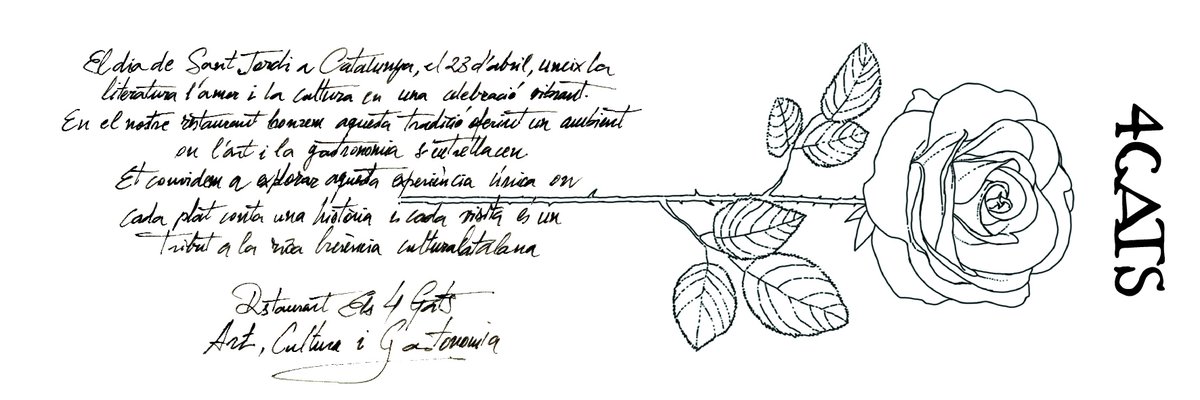 El dia de Sant Jordi a Catalunya, el 23 d'abril, uneix la
literatura l'amor i la cultura en una celebració vibrant.
En el nostre restaurant honrem aquesta tradició oferint un ambient
on l'art i la gastronomia s'entrellacen
Et convidem a explorar aquesta experiència única on
cada plat conta una història i cada visita és un
tribut a la rica herència cultural catalana
Restaurant Els 4 Gats
Art, Cultura i Gastronomia
4GATS